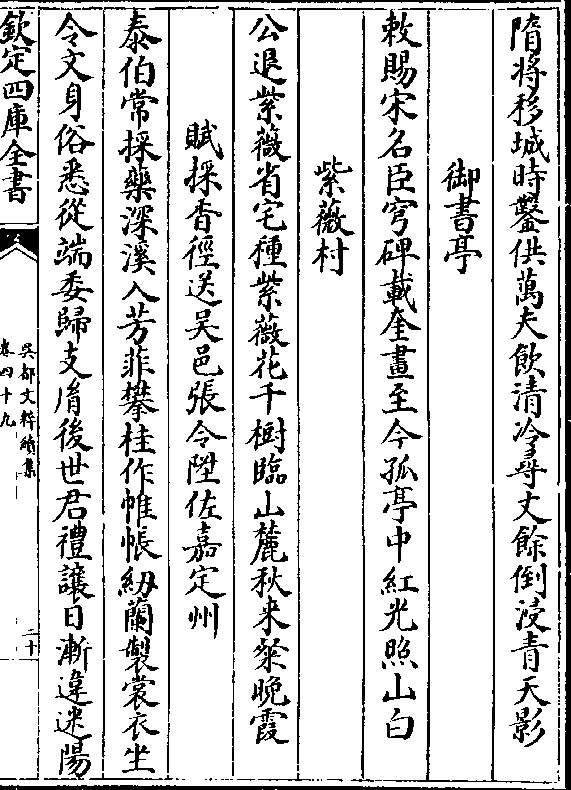 隋將移城時鑿供萬夫飲清冷尋丈餘倒浸青天影
御書亭
敕賜宋名臣穹碑載奎畫至今孤亭中紅光照山白
紫薇村
公退紫薇省宅種紫薇花千樹臨山麓秋来粲晚霞
賦採香徑送吴邑張令陞佐嘉定州
泰伯常採藥深溪入芳菲攀桂作帷帳紉蘭製裳衣坐
令文身俗悉從端委歸支胤後世君禮讓日漸違迷陽
欽定四庫全書
吴都文粹續集
卷四十九
二十